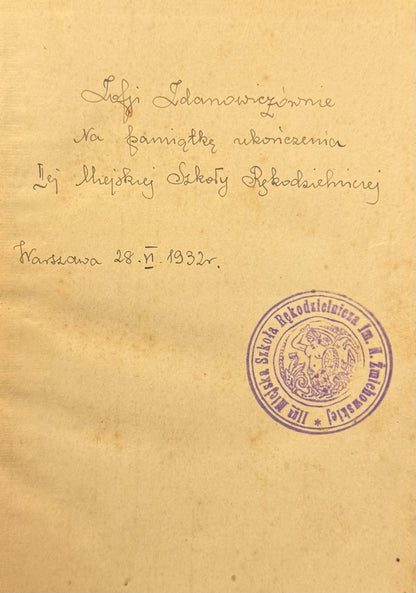 Zofji Zdanowiczównie
Na pamiątkę ukończenia
IIej Miejskiej Szkoły Rękodzielniczej
Warszawa 28.VI.1932r.
IIga Miejska Szkoła Rękodzielnicza im. N. Żmichowskiej *